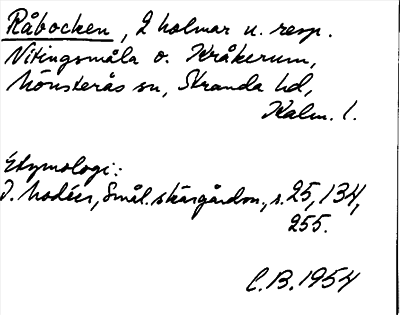 Råbocken, 2 holmar u. resp.
Vitingsmåla o. Kråkerum,
Mönsterås sn, Stranda hd,
Kalm. l.
Etymologi:
J. Modéer, Smål. skärgårdsn., s. 25, 134,
255.
C.B. 1954